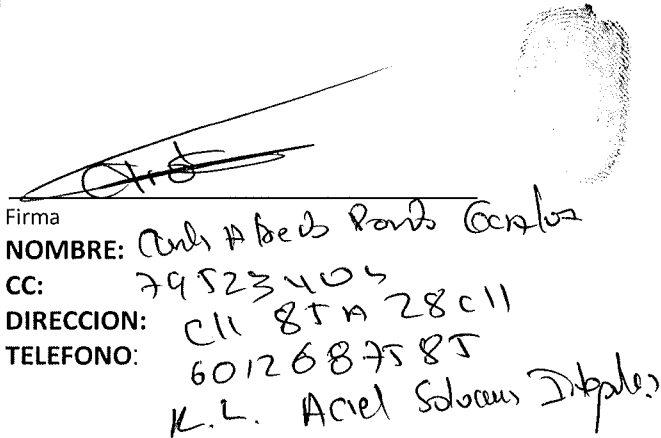 Firma
NOMBRE: Carlos Alberto Pardo González
CC: 79523405
DIRECCION: Cll 85A 28C11
TELEFONO: 6012687585
R.L. Aciel Soluciones Integrales